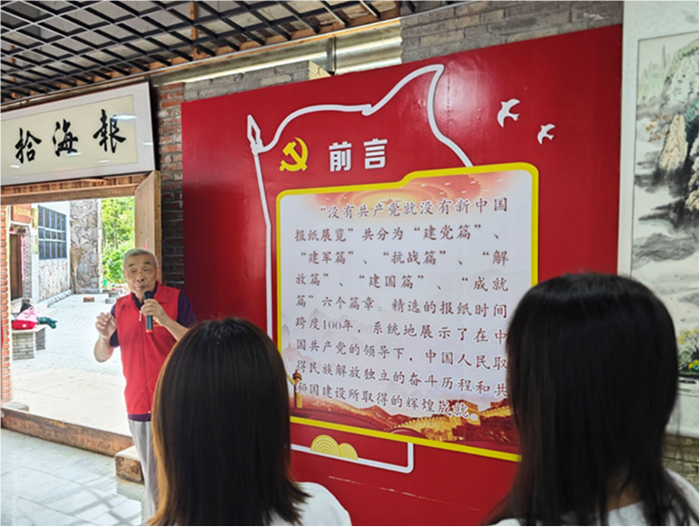 報海拾
前言
“没有共产党就没有新中国
报纸展览”共分为“建党篇”、
“建军篇”、“抗战篇”、“解
放篇”、“建国篇”、“成就
篇”六个篇章。精选的报纸时间
跨度100年，系统地展示了在中
国共产党的领导下，中国人民取
得民族解放独立的奋斗历程和共
和国建设所取得的辉煌成就。